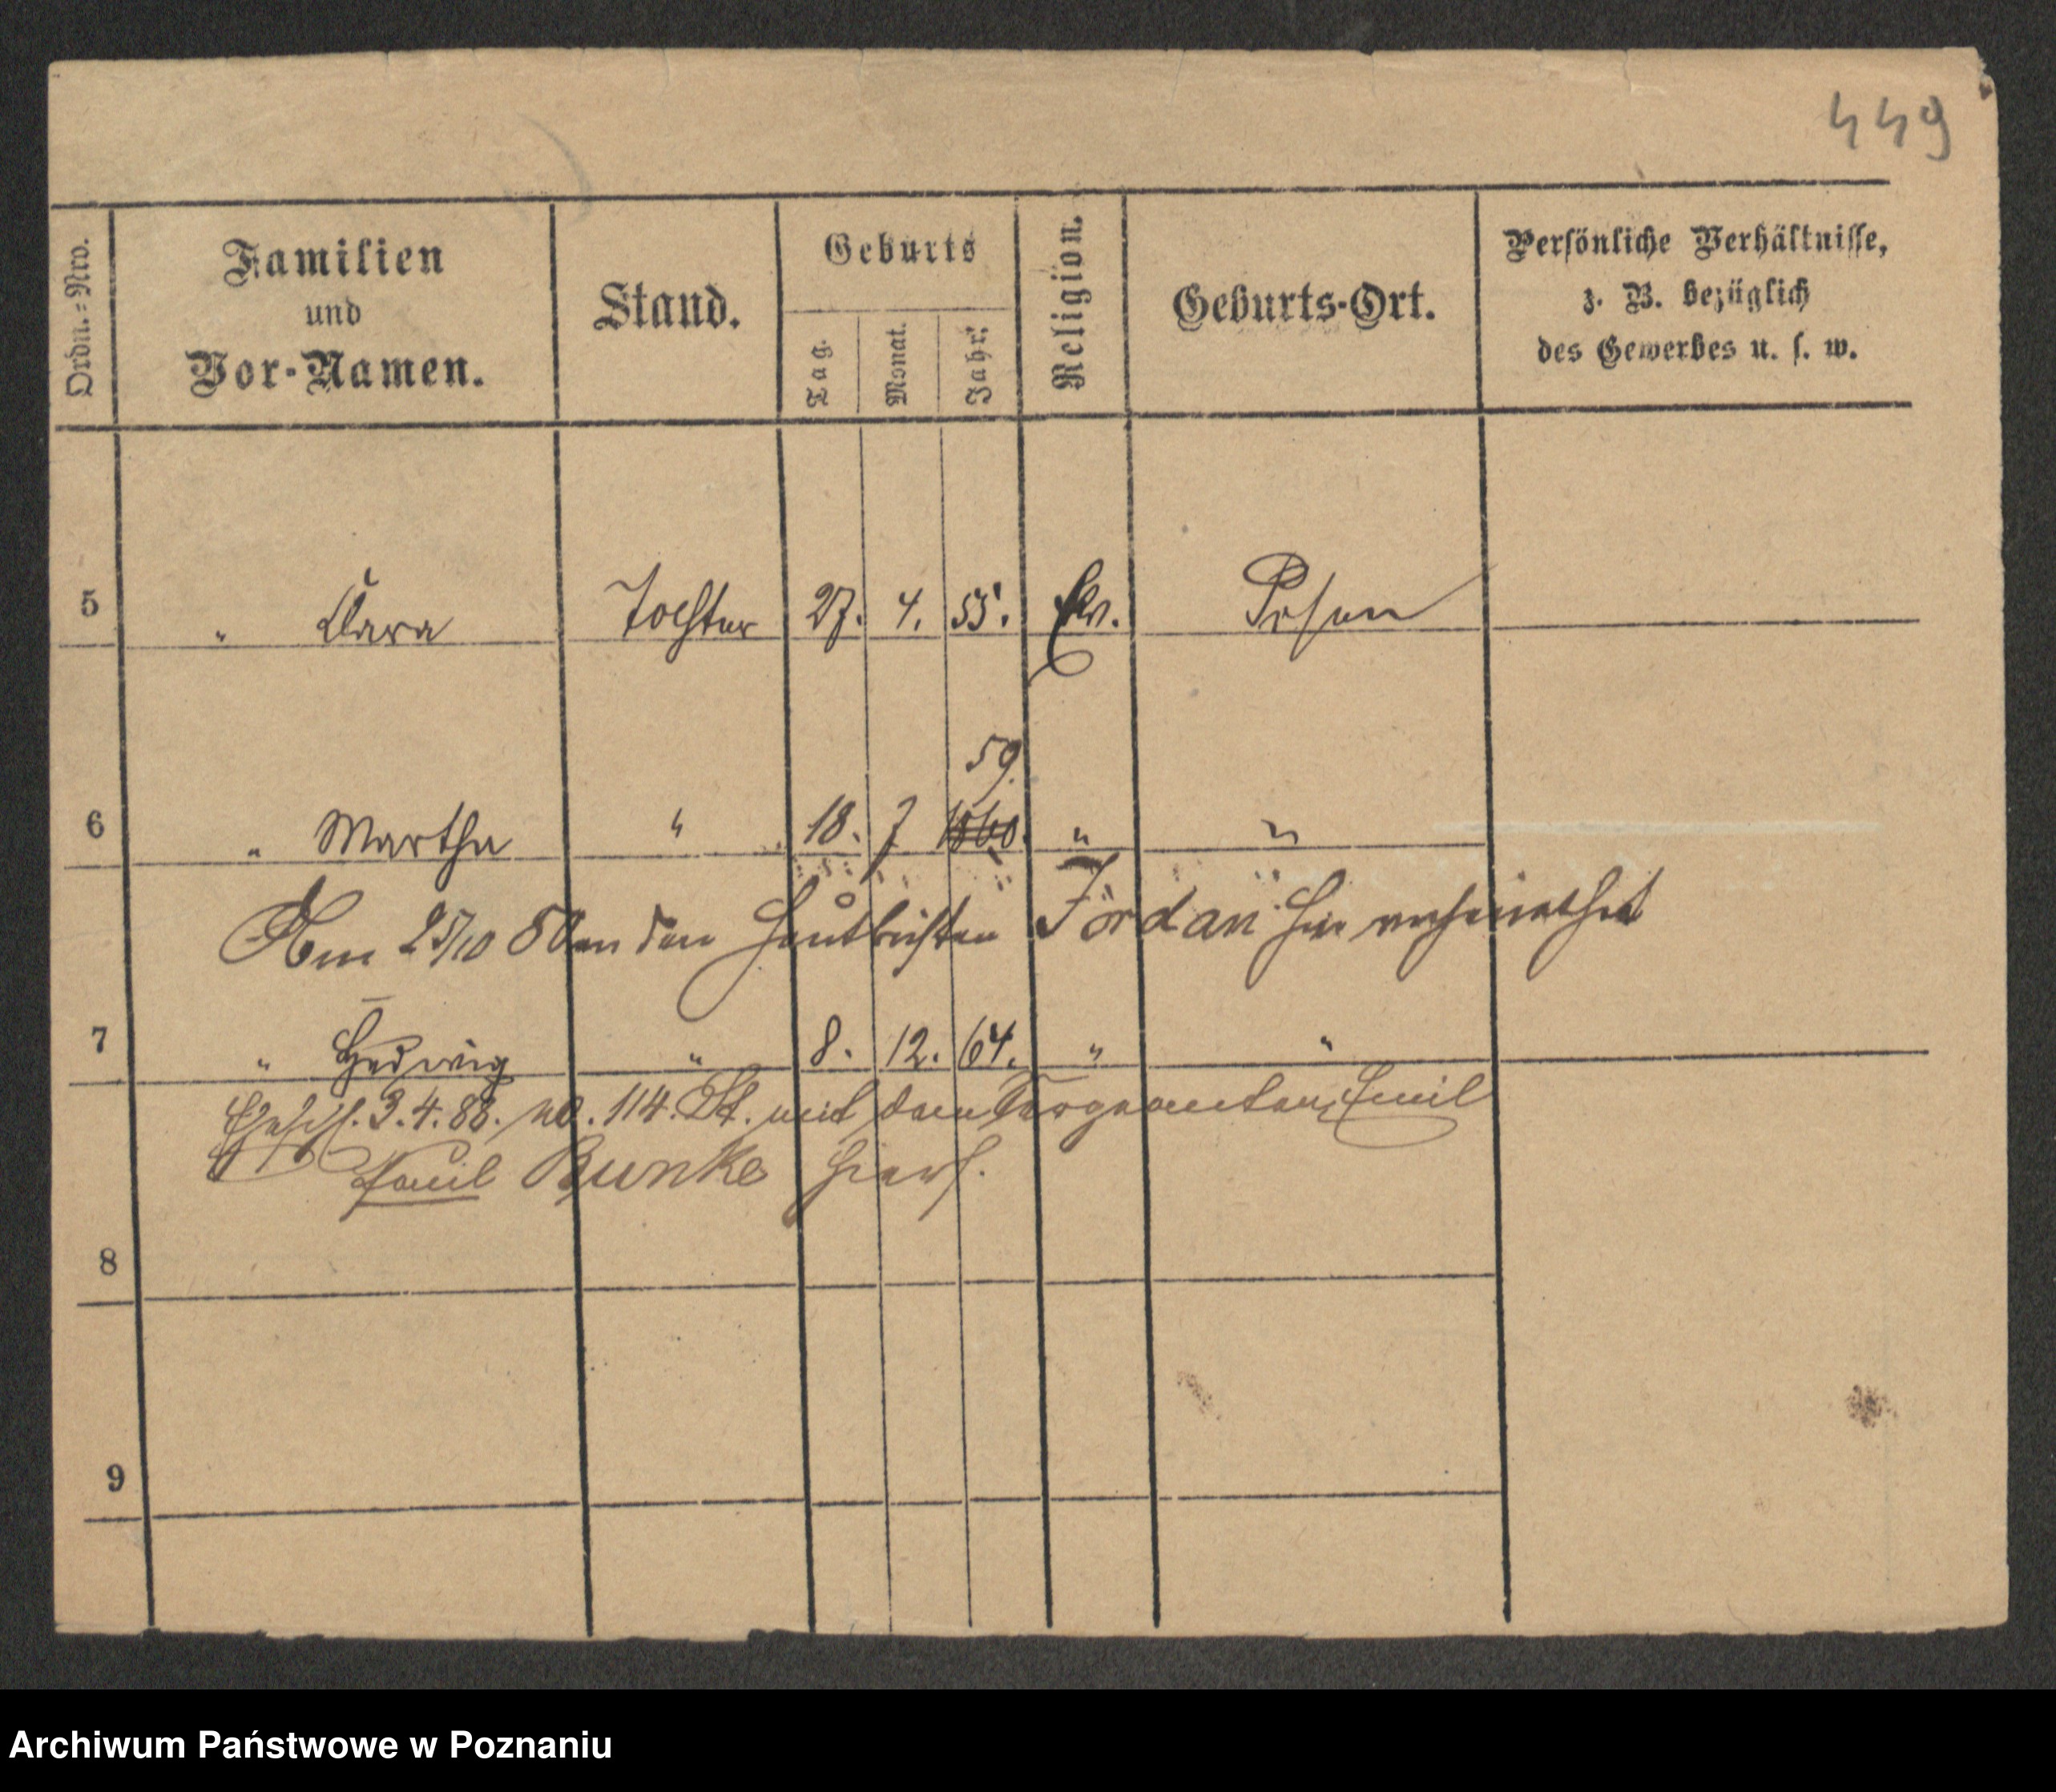 449
Ordn.-Nro.
Familien
und
Vor-Namen.
Stand.
Geburts
Tag.
Monat.
Jahr.
Religion.
Geburts-Ort.
Persönliche Verhältnisse,
z. B. bezüglich
des Gewerbes u. s. w.
5 " Clara Tochter 27. 4. 55. Ev. Posen
59.
6 " Martha " 18. 7 1860. " "
Am 25/10 80 an den Hautboisten Jordan hier verheirathet
7 " Hedwig " 8. 12. 64. " "
Ehesch. 3.4.88. No. 114. St. mit dem Sergeanten Emil
Emil Bunke hiers.
8
9
Archiwum Państwowe w Poznaniu